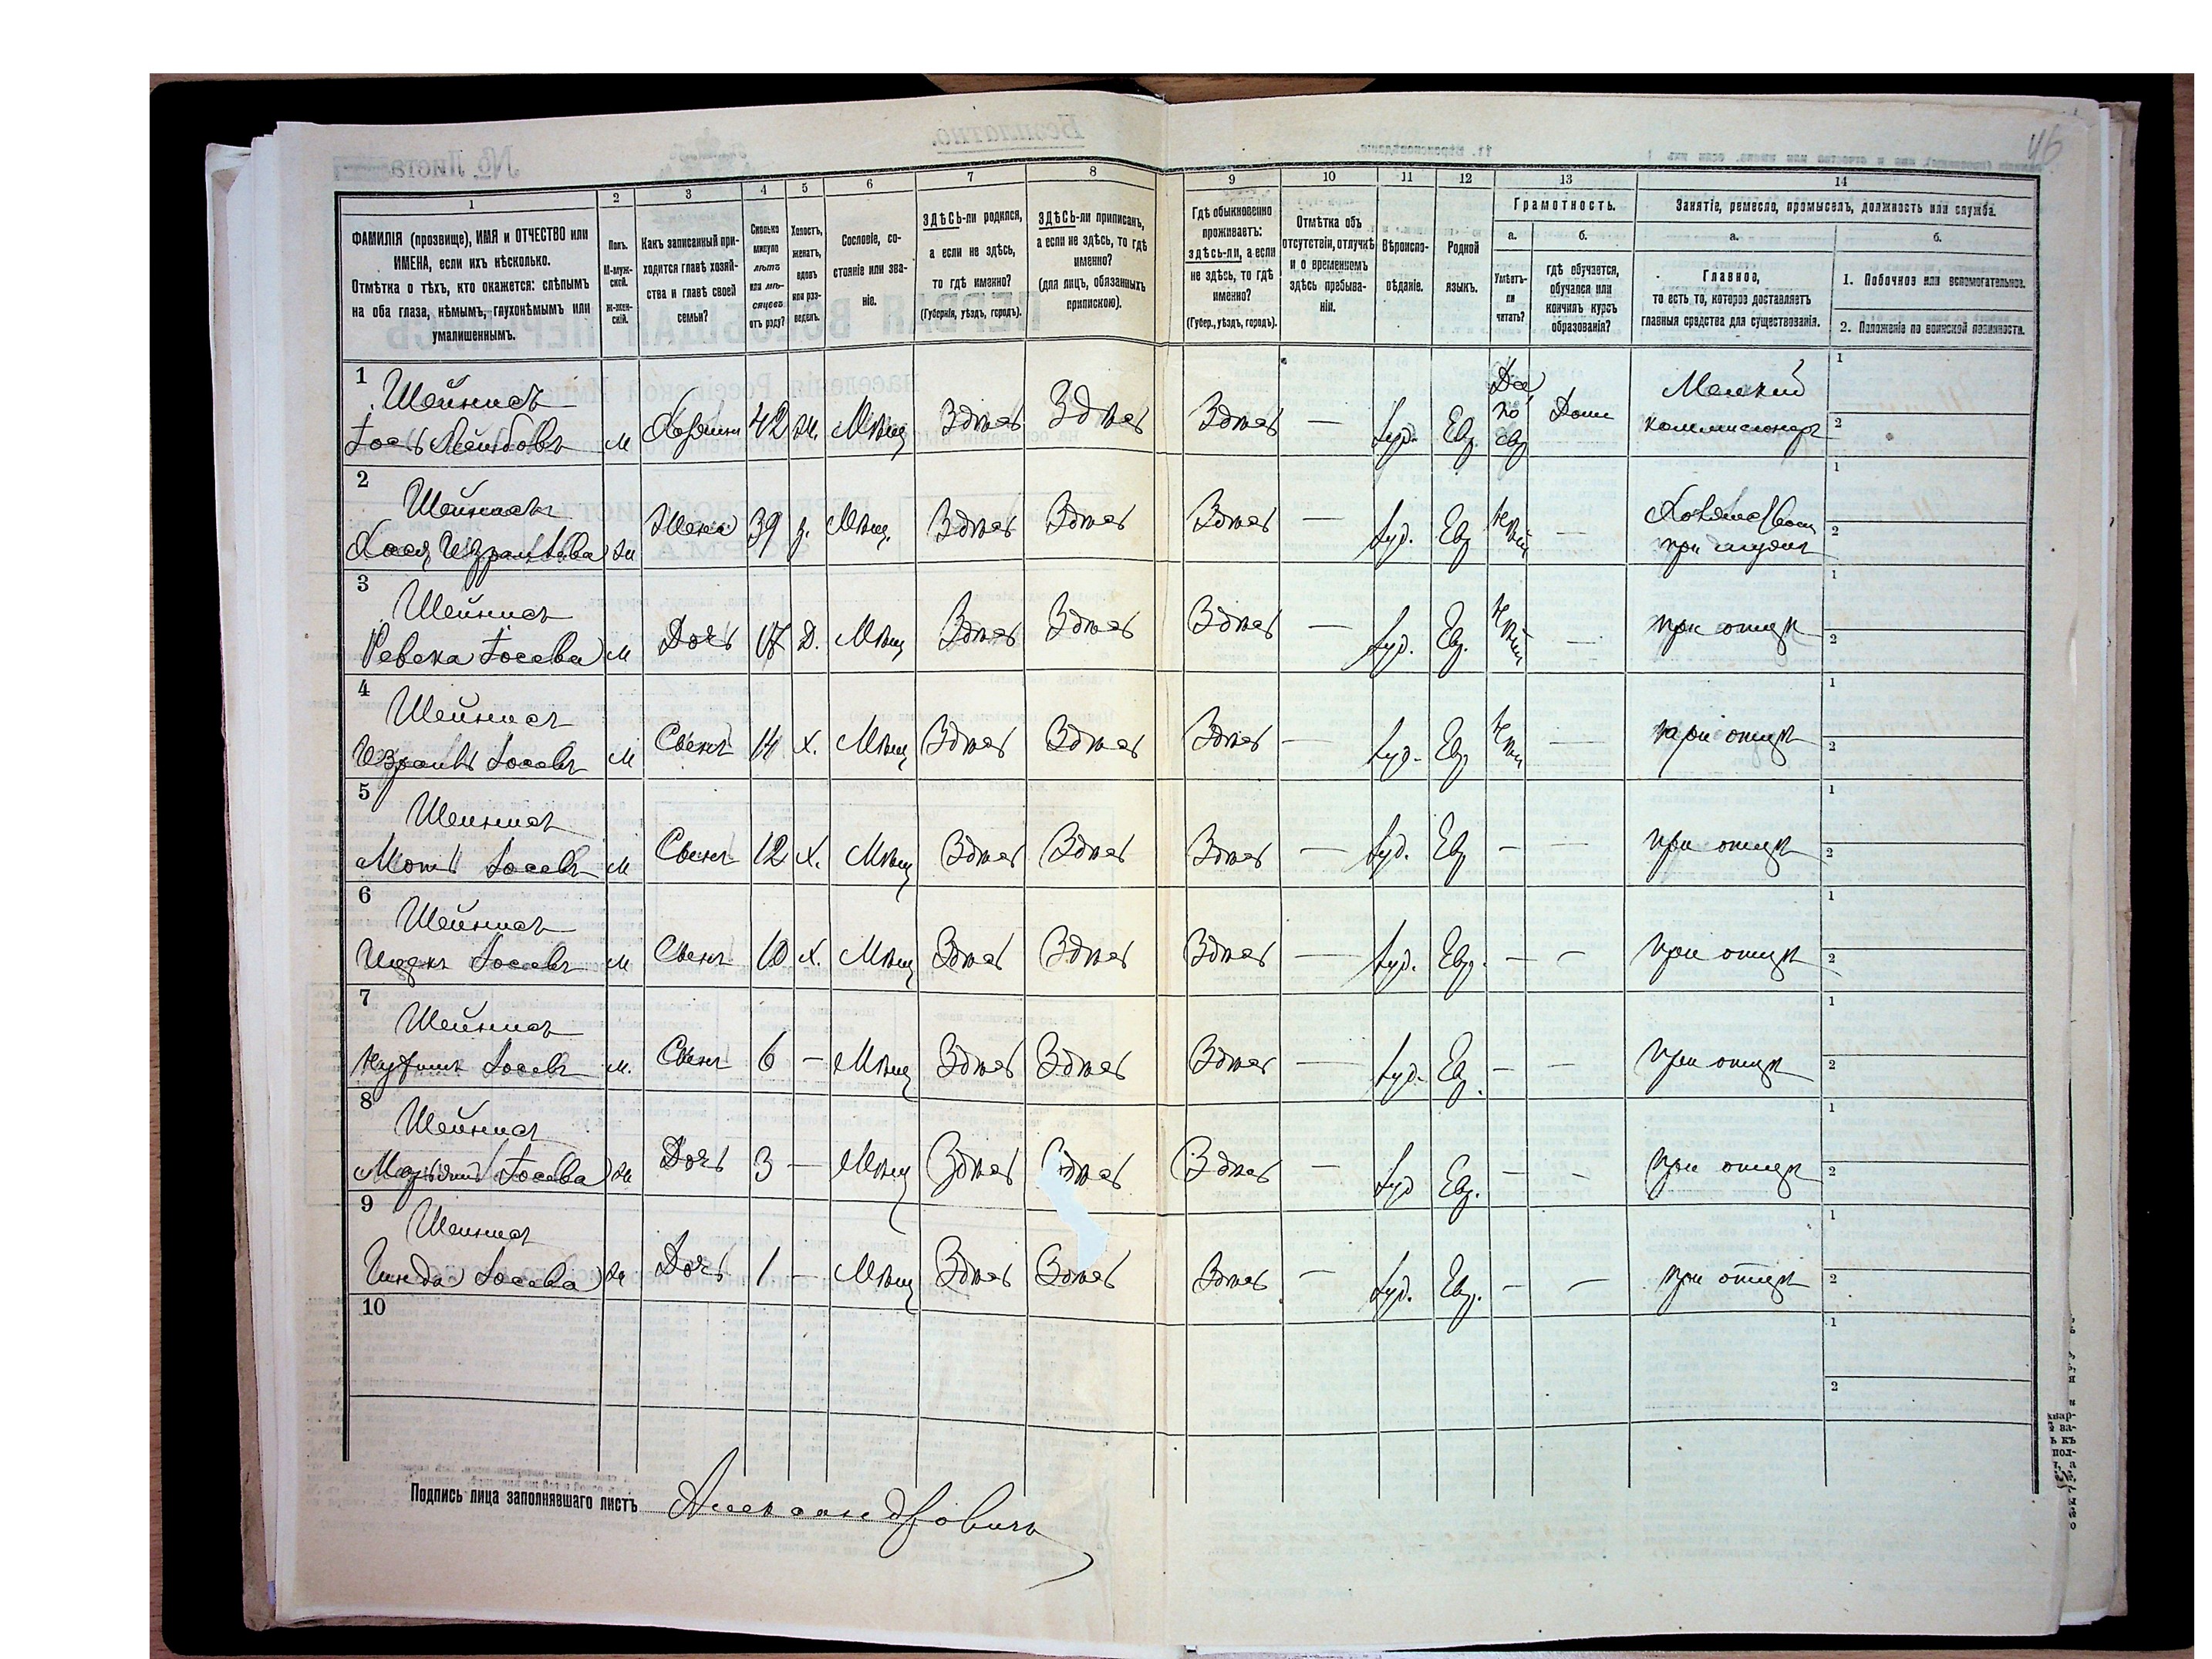 46
1
2
3
4
5
6
7
8
9
10
11
12
13
14
ФАМИЛІЯ (прозвище), ИМЯ и ОТЧЕСТВО или
ИМЕНА, если ихъ нѣсколько.
Отмѣтка о тѣхъ, кто окажется: слѣпымъ
на оба глаза, нѣмымъ, глухонѣмымъ или
умалишеннымъ.
Полъ.
М-муж-
ской.
Ж-жен-
скій.
Какъ записанный при-
ходится главѣ хозяй-
ства и главѣ своей
семьи?
Сколько
минуло
лѣтъ
или мѣ-
сяцевъ
отъ роду?
Холостъ,
женатъ,
вдовъ
или раз-
веденъ.
Сословіе, со-
стояніе или зва-
ніе.
ЗДѢСЬ-ли родился,
а если не здѣсь,
то гдѣ именно?
(Губернія, уѣздъ, городъ).
ЗДѢСЬ-ли приписанъ,
а если не здѣсь, то гдѣ
именно?
(для лицъ, обязанныхъ
припискою).
Гдѣ обыкновенно
проживаетъ:
здѣсь-ли, а если
не здѣсь, то гдѣ
именно?
(Губер., уѣздъ, городъ).
Отмѣтка объ
отсутствіи, отлучкѣ
и о временномъ
здѣсь пребыва-
ніи.
Вѣроиспо-
вѣданіе.
Родной
языкъ.
Грамотность.
а.
б.
Умѣетъ-
ли
читать?
гдѣ обучается,
обучался или
кончилъ курсъ
образованія?
Занятіе, ремесло, промыселъ, должность или служба.
а.
б.
Главное,
то есть то, которое доставляетъ
главныя средства для существованія.
1. Побочное или вспомогательное.
2. Положеніе по воинской повинности.
1
Шейнисъ
Іось Лейбовъ м Хозяинъ 42 ж. Мѣщ Здѣсь Здѣсь Здѣсь — Іуд. Евр. Да по евр Дома Мелкий
коммисіонеръ
1
2
2
Шейнисъ
Хася Израилева ж Жена 39 з. Мѣщ. Здѣсь Здѣсь Здѣсь — Іуд. Евр Нѣтъ — Хозяйство
при мужѣ
1
2
3
Шейнисъ
Ревека Іосева м Дочь 17 Д. Мѣщ Здѣсь Здѣсь Здѣсь — Іуд. Евр. Нѣтъ — при отцѣ
1
2
4
Шейнисъ
Израиль Іосевъ м Сынъ 14 Х. Мѣщ Здѣсь Здѣсь Здѣсь — Іуд. Евр Нѣтъ — при отцѣ
1
2
5
Шейнисъ
Моть Іосевъ м Сынъ 12 Х. Мѣщ Здѣсь Здѣсь Здѣсь — Іуд. Евр — — при отцѣ
1
2
6
Шейнисъ
Іосевъ м Сынъ 10 Х. Мѣщ Здѣсь Здѣсь Здѣсь — Іуд. Евр. — — при отцѣ
1
2
7
Шейнисъ
Іосевъ м. Сынъ 6 — Мѣщ Здѣсь Здѣсь Здѣсь — Іуд. Евр. — — при отцѣ
1
2
8
Шейнисъ
Іосева ж Дочь 3 — Мѣщ Здѣсь Здѣсь Здѣсь — Іуд Евр. — — при отцѣ
1
2
9
Шейнисъ
Гинда Іосева ж Дочь 1 — Мѣщ Здѣсь Здѣсь Здѣсь — Іуд. Евр. — — при отцѣ
1
2
10
1
2
Подпись лица заполнявшаго листъ Александровичъ